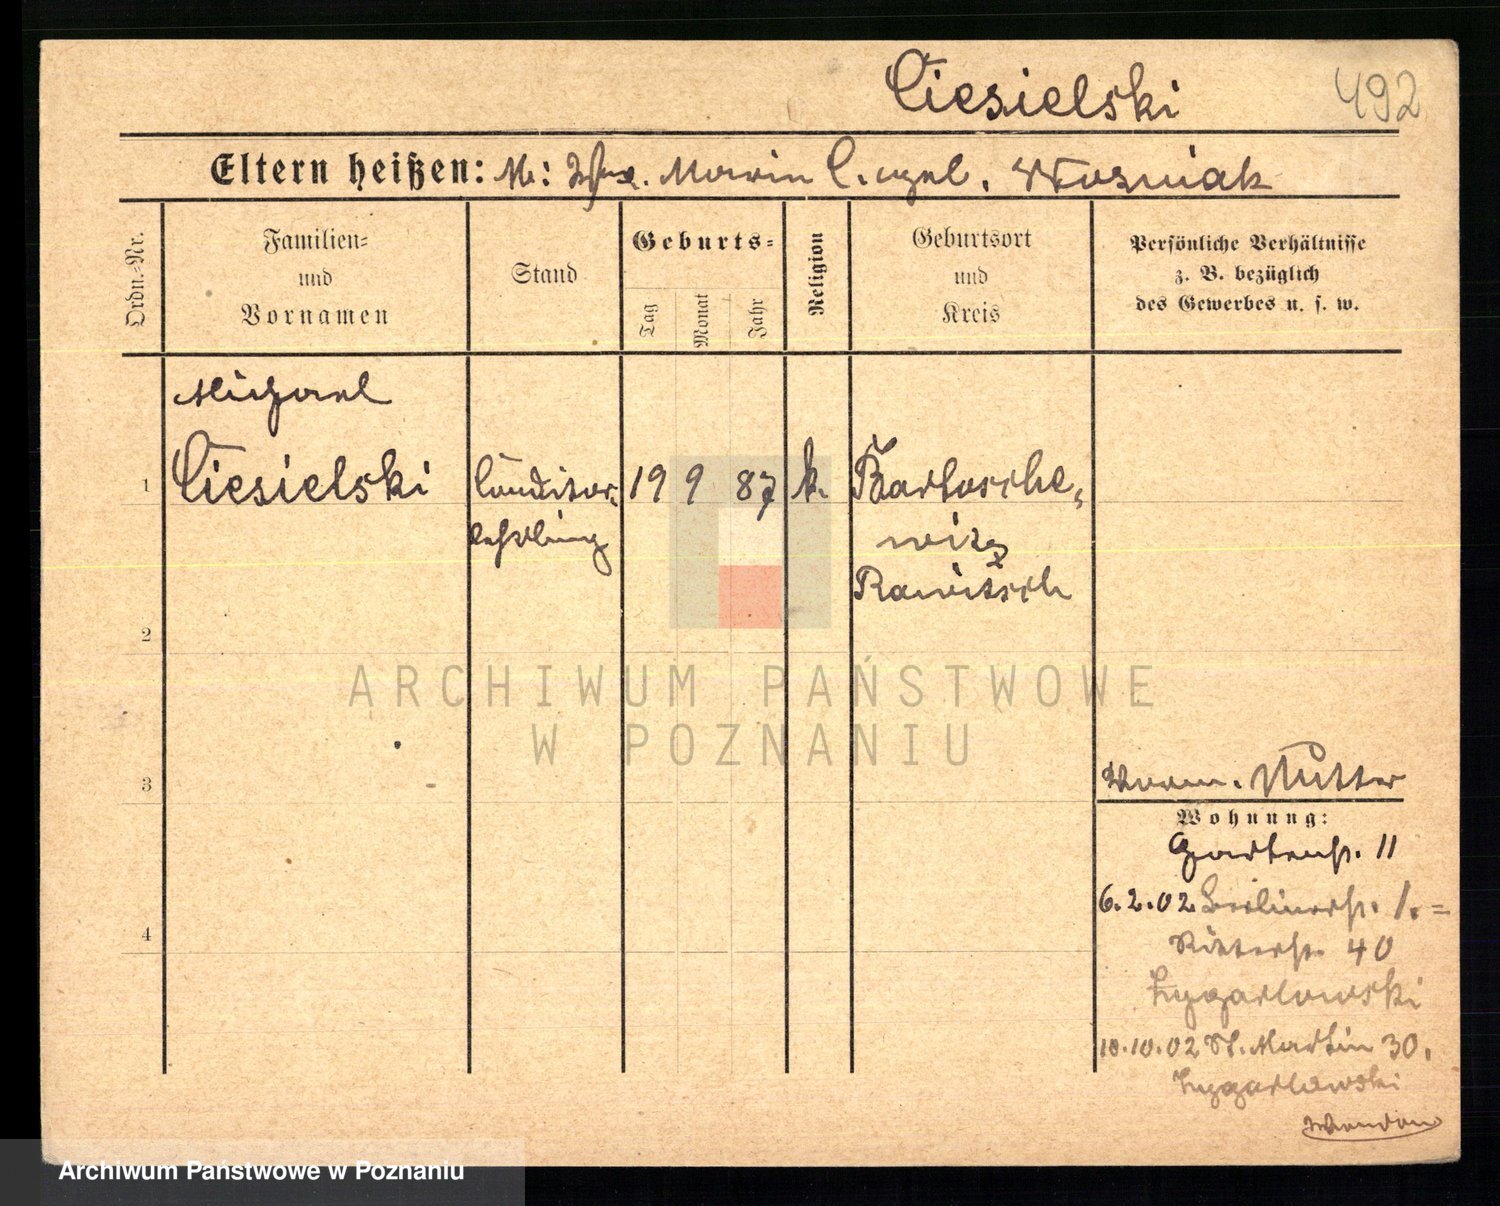 Ciesielski 492
Eltern heißen: M: Wwe. Marie C. geb. Wozniak
Ordn.-Nr.
Familien-
und
Vornamen
Stand
Geburts-
Tag
Monat
Jahr
Religion
Geburtsort
und
Kreis
Persönliche Verhältnisse
z. B. bezüglich
des Gewerbes u. s. w.
Michael
1 Ciesielski Conditor- 19 9 87 k. Bartosche-
lehrling witz
Rawitsch
2
ARCHIWUM PAŃSTWOWE
W POZNANIU
3
Mutter
Wohnung:
Gartenstr. 11
6.2.02 Berlinerstr. 1. =
Ritterstr. 40
10.10.02 St. Martin 30.
Wenden
4
Archiwum Państwowe w Poznaniu